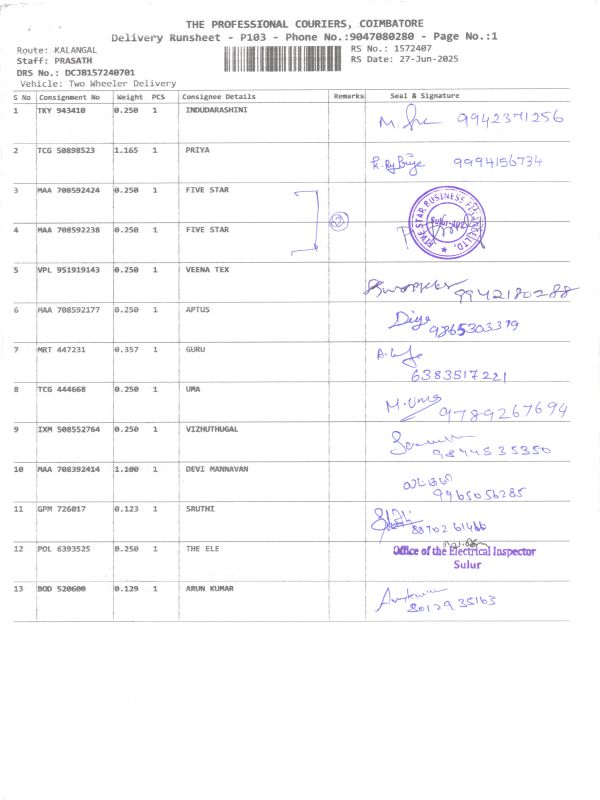 THE PROFESSIONAL COURIERS, COIMBATORE
Delivery Runsheet - P103 - Phone No.:9047080280 - Page No.:1
Route: KALANGAL
RS No.: 1572407
Staff: PRASATH
RS Date: 27-Jun-2025
DRS No.: DCJB157240701
Vehicle: Two Wheeler Delivery
S No Consignment No Weight PCS Consignee Details Remarks Seal & Signature
1 TKY 943410 0.250 1 INDUDARASHINI 9942371256
2 TCG 50898523 1.165 1 PRIYA 9994156734
3 MAA 708592424 0.250 1 FIVE STAR
FIVE STAR BUSINESS FINANCE LTD.
4 MAA 708592238 0.250 1 FIVE STAR
5 VPL 951919143 0.250 1 VEENA TEX
9942180288
6 MAA 708592177 0.250 1 APTUS Diya
9865303379
7 MRT 447231 0.357 1 GURU
6383517221
8 TCG 444668 0.250 1 UMA M.Uma
9789267694
9 IXM 508552764 0.250 1 VIZHUTHUGAL
9844535350
10 MAA 708392414 1.100 1 DEVI MANNAVAN
9965056285
11 GPM 726017 0.123 1 SRUTHI
12 POL 6393525 0.250 1 THE ELE Office of the Electrical Inspector
Sulur
13 BOD 520600 0.129 1 ARUN KUMAR
8012935163